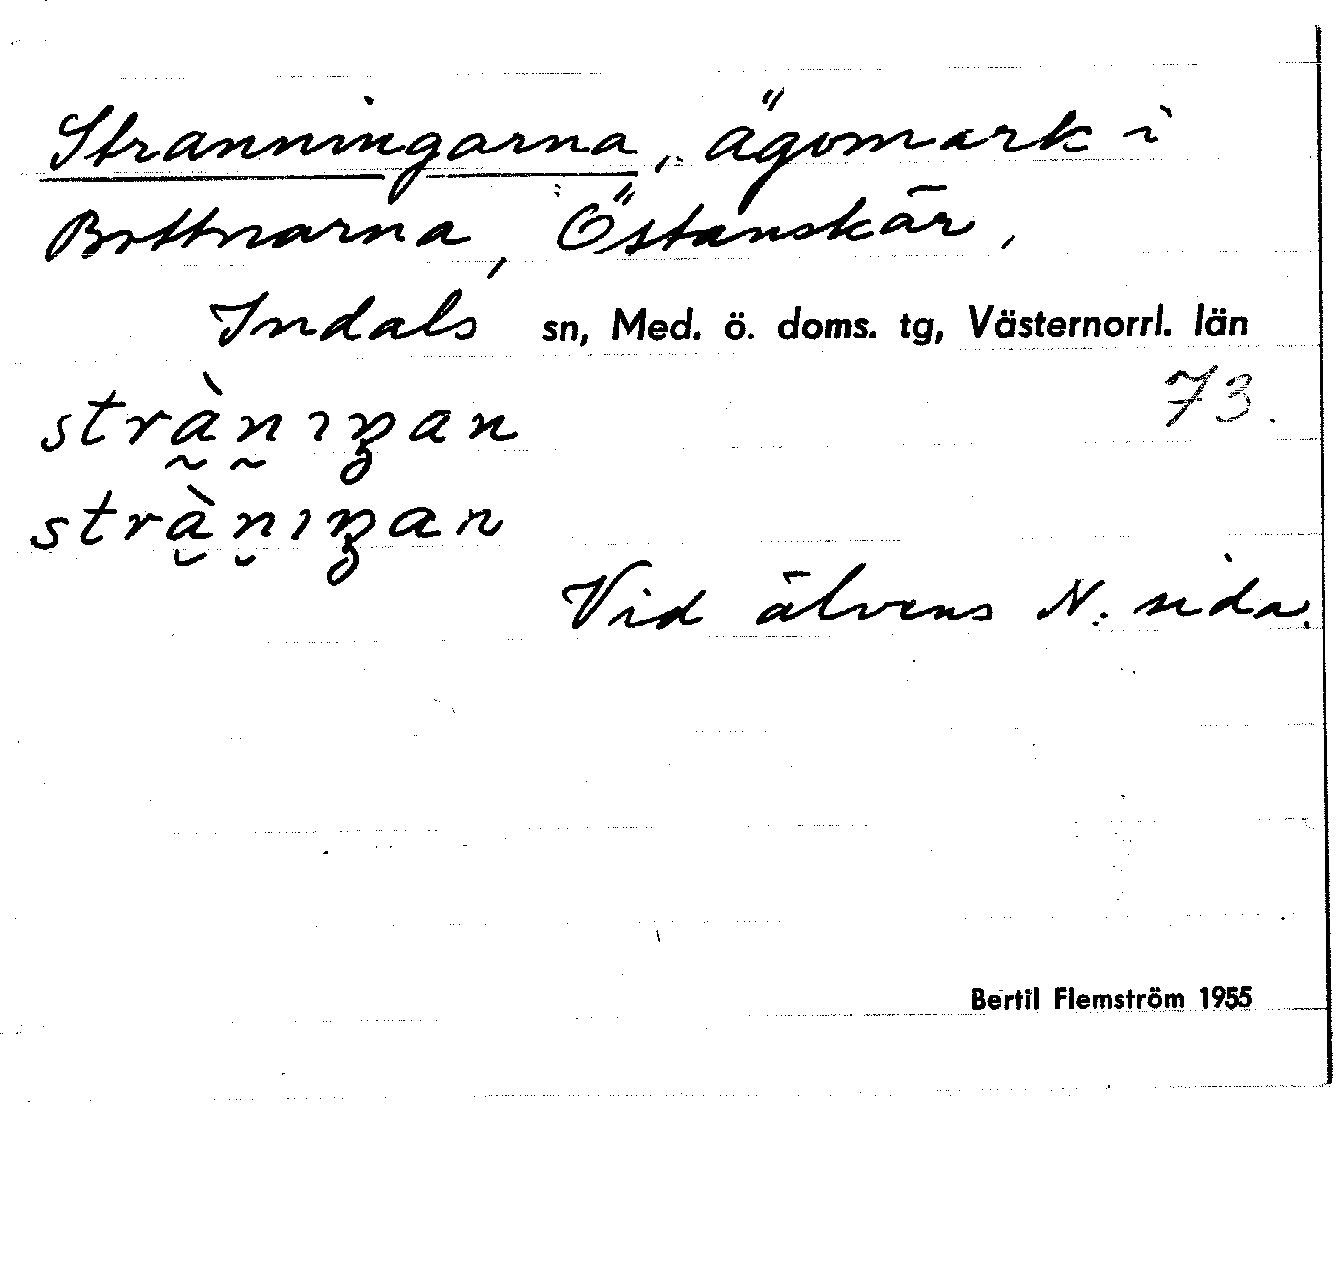 Stranningarna, ägomark i
Bottnarna, Östanskär,
Indals sn, Med. ö. doms. tg, Västernorrl. län
73.
Vid älvens N. sida.
Bertil Flemström 1955